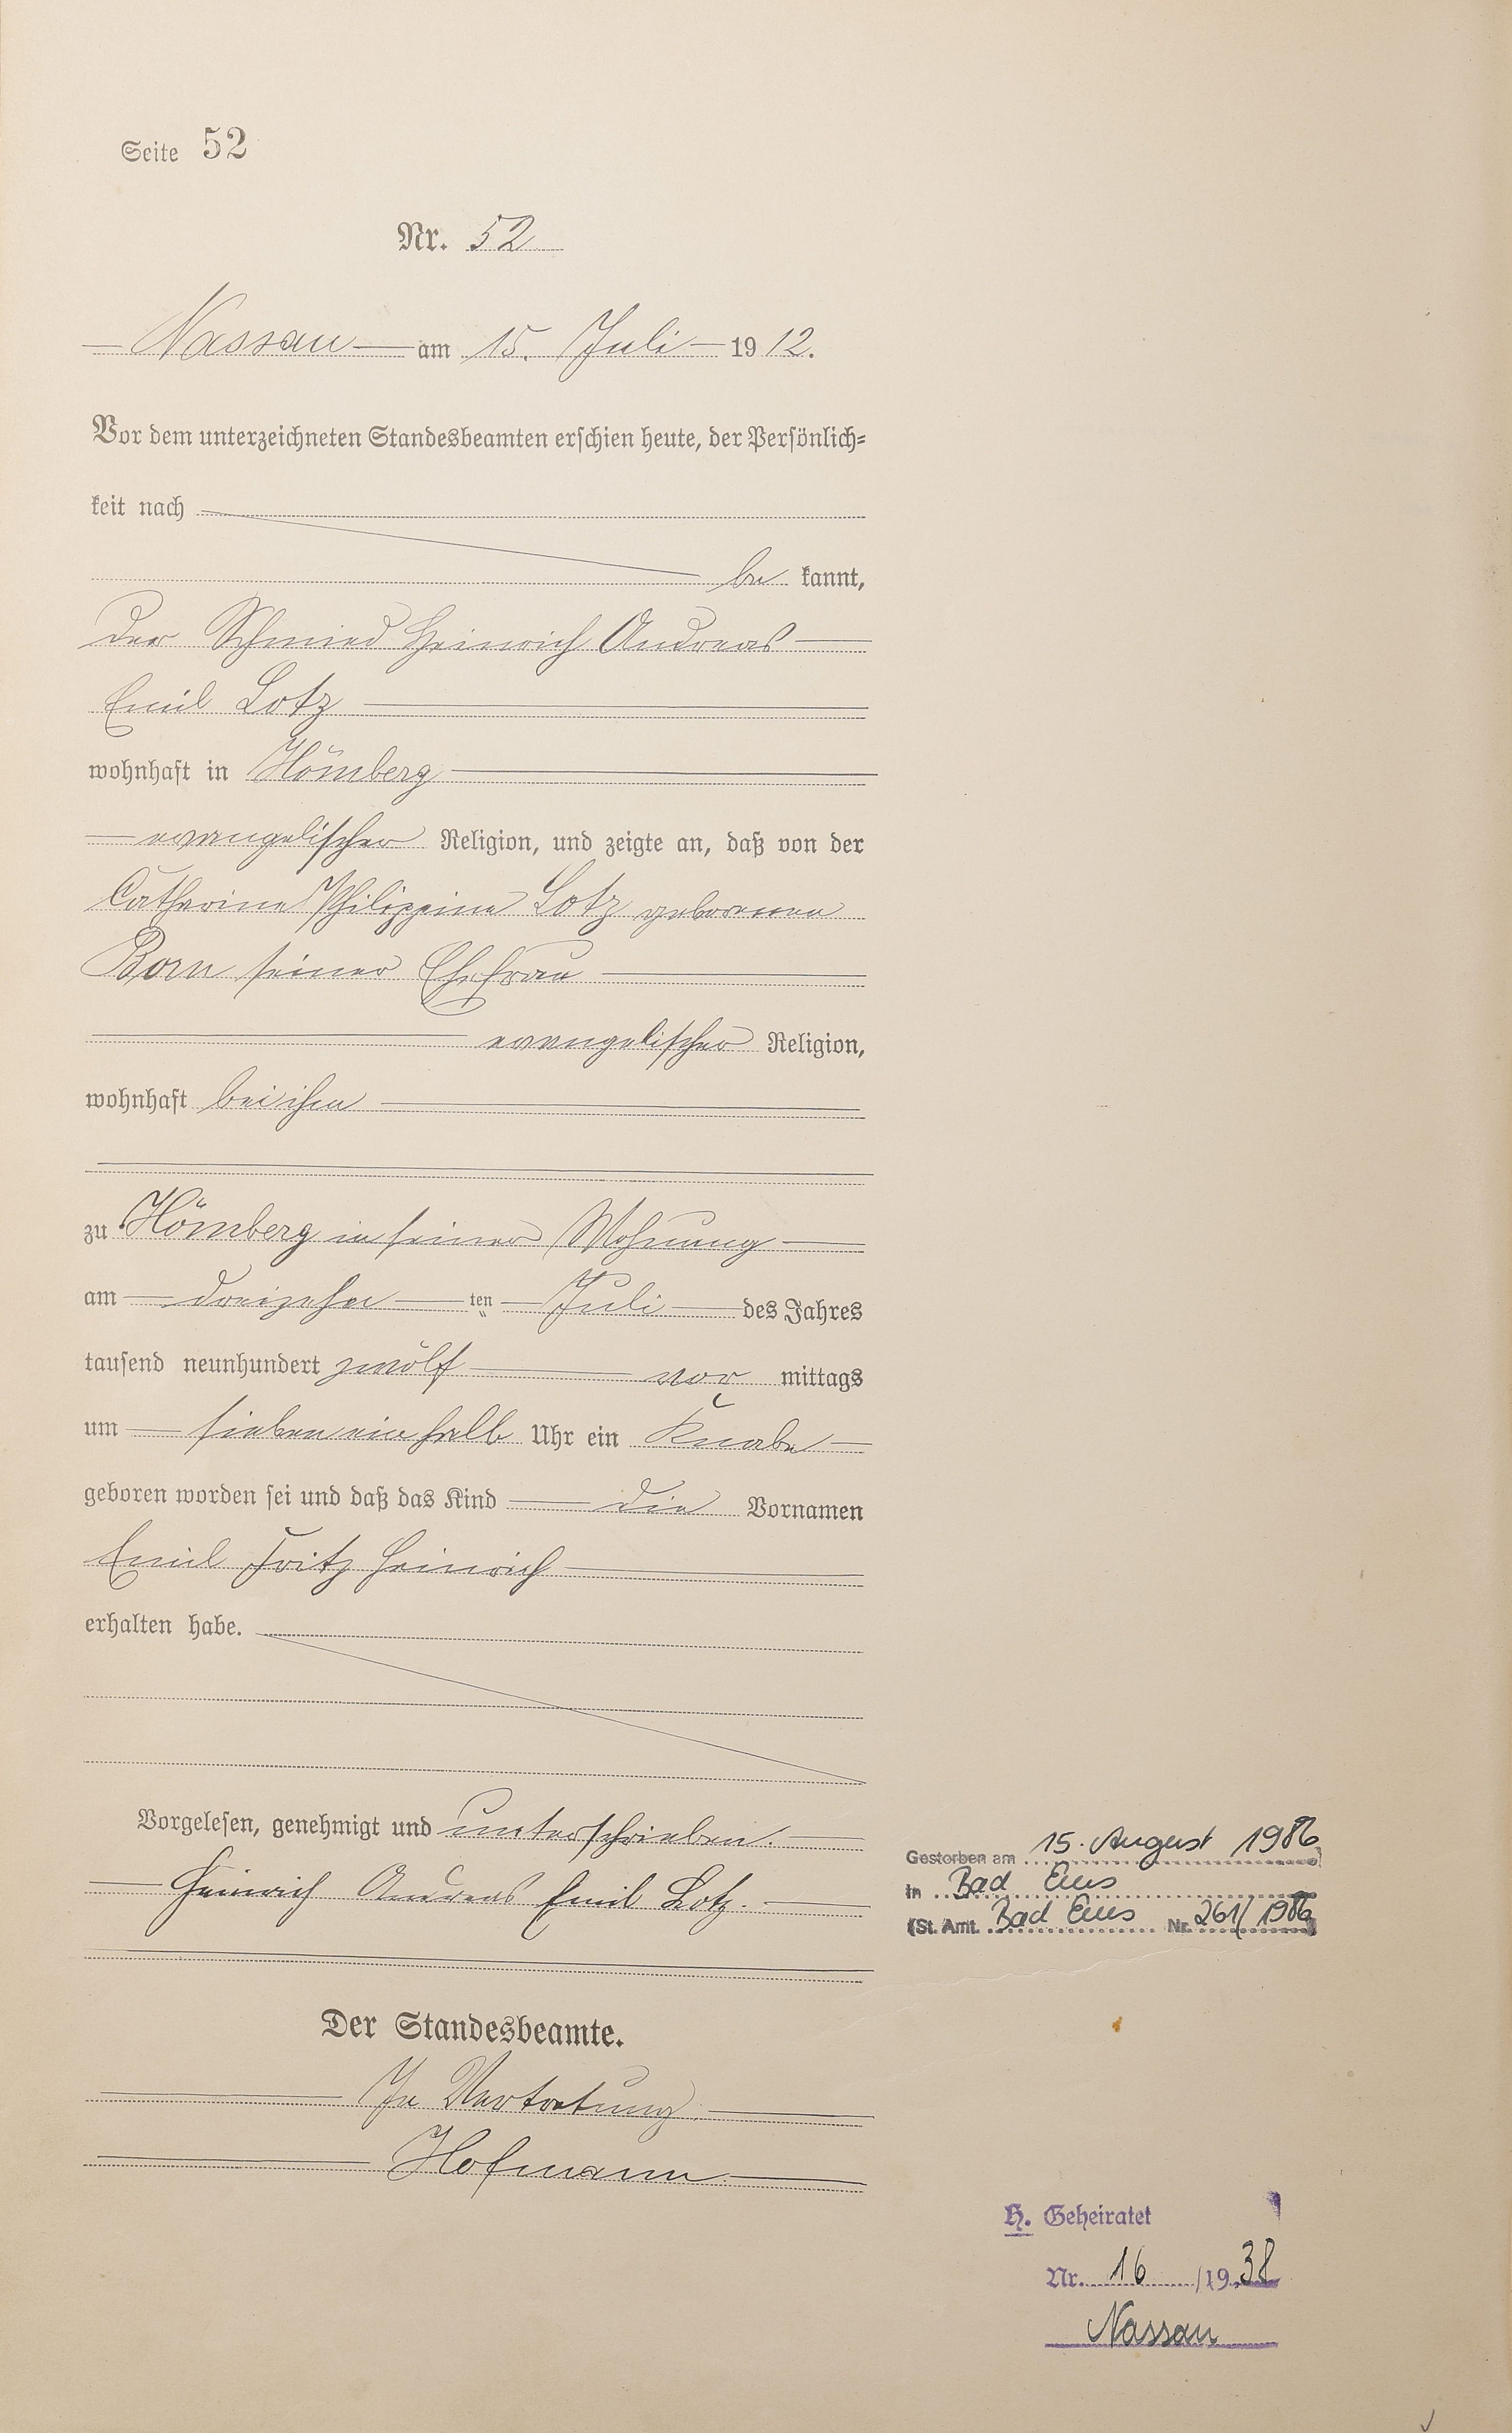 Seite 52
Nr. 52
Nassau am 15. Juli 1912.
Vor dem unterzeichneten Standesbeamten erschien heute, der Persönlich=
keit nach
be kannt,
der Schmied Heinrich Andreas
Emil Lotz
wohnhaft in Hömberg
evangelischer Religion, und zeigte an, daß von der
Catharine Philippine Lotz geborenen
Born seiner Ehefrau
evangelischer Religion,
wohnhaft bei ihm
zu Hömberg in seiner Wohnung
am dreizehn ten Juli des Jahres
tausend neunhundert zwölf vor mittags
um sieben ein halb Uhr ein Knabe
geboren worden sei und daß das Kind die Vornamen
Emil Fritz Heinrich
erhalten habe.
Vorgelesen, genehmigt und unterschrieben.
Heinrich Andreas Emil Lotz.
Der Standesbeamte.
In Vertretung.
Hofmann
Gestorben am 15. August 1986
in Bad Ems
(St. Amt. Bad Ems Nr. 261/1986)
H. Geheiratet
Nr. 16 /19 38
Nassau